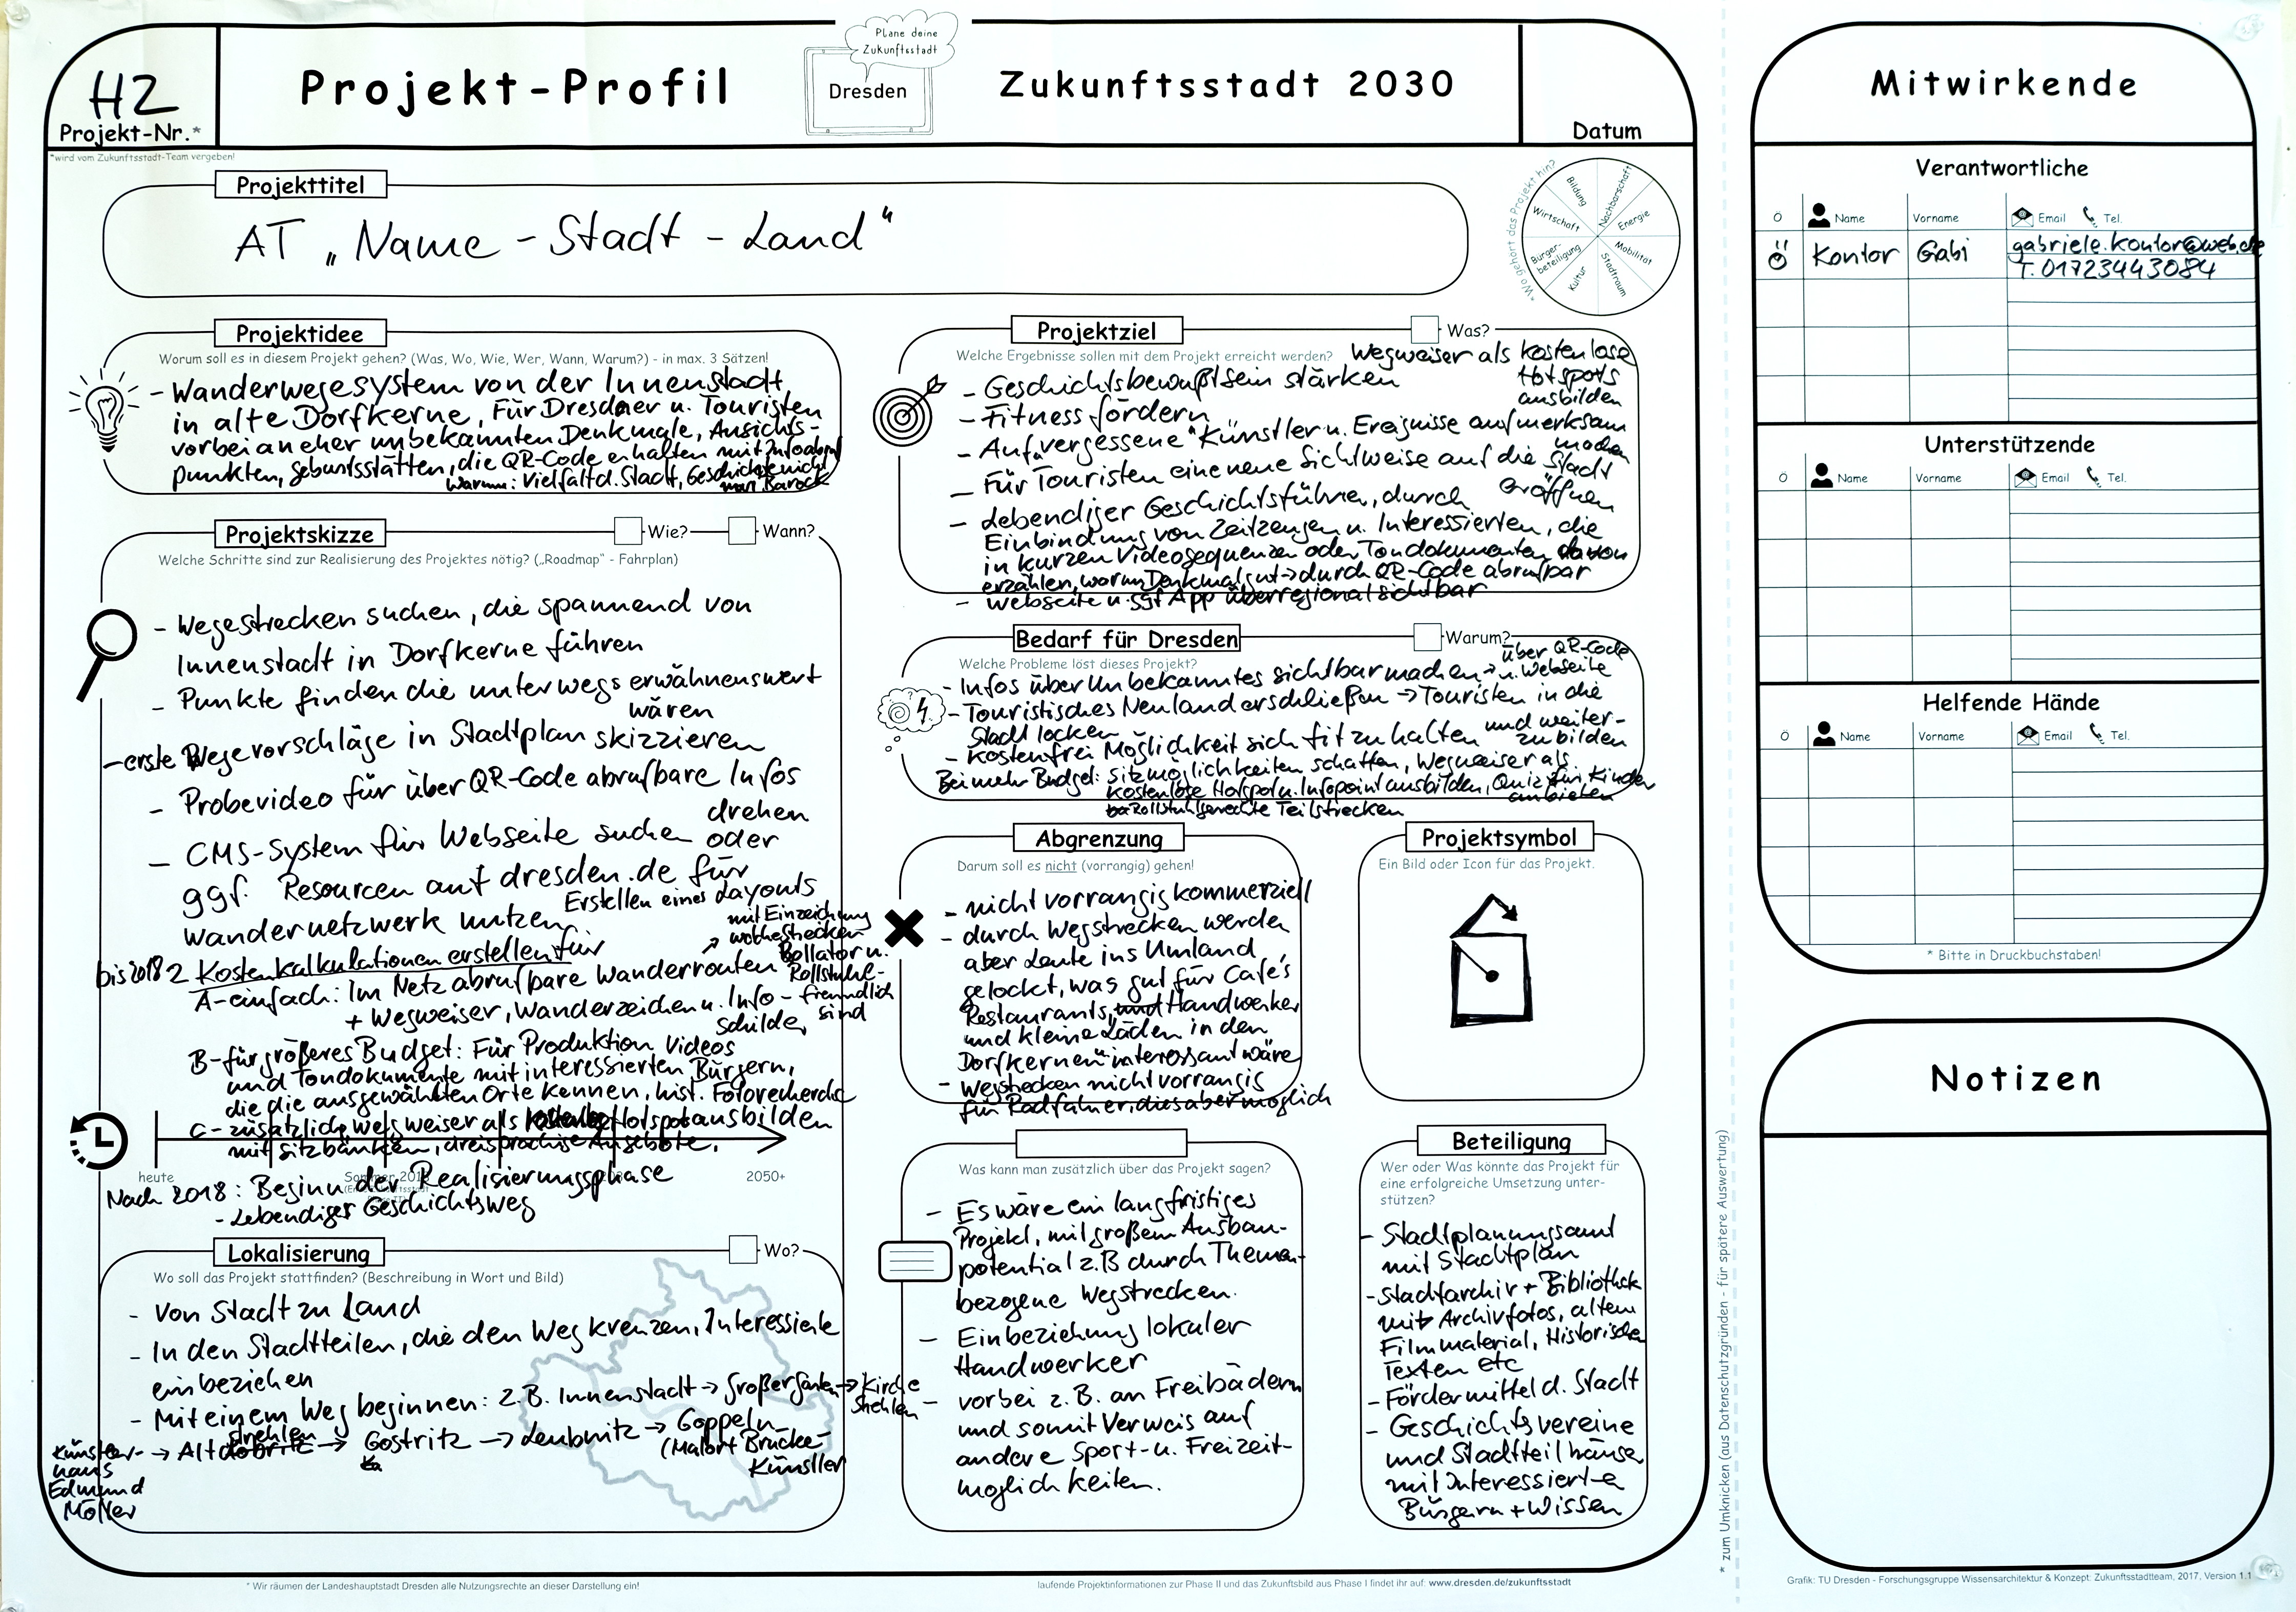 H2
Projekt-Nr.*
*wird vom Zukunftsstadt-Team vergeben!
Projekt-Profil
Plane deine
Zukunftsstadt
Dresden
Zukunftsstadt 2030
Datum
Projekttitel
AT „Name - Stadt - Land"
*Wo gehört das Projekt hin?
Bildung
Nachbarschaft
Energie
Mobilität
Stadtraum
Kultur
Bürger-
beteiligung
Wirtschaft
Projektidee
Worum soll es in diesem Projekt gehen? (Was, Wo, Wie, Wer, Wann, Warum?) - in max. 3 Sätzen!
- Wanderwegesystem von der Innenstadt
in alte Dorfkerne, Für Dresdner u. Touristen
vorbei an eher unbekannten Denkmale, Ansichts-
punkten, Geburtsstätten, die QR-Code erhalten mit Infoabruf
Warum: Vielfalt d. Stadt, Geschichte nicht
nur Barock
Projektskizze
Wie?
Wann?
Welche Schritte sind zur Realisierung des Projektes nötig? („Roadmap" - Fahrplan)
- Wegestrecken suchen, die spannend von
Innenstadt in Dorfkerne führen
- Punkte finden die unterwegs erwähnenswert
wären
- erste Wegevorschläge in Stadtplan skizzieren
- Probevideo für über QR-Code abrufbare Infos
drehen
- CMS-System für Webseite suchen oder
ggf. Resourcen auf dresden.de für
Erstellen eines Layouts
Wandernetzwerk nutzen
mit Einzeichnung
welche Strecken
Rollator u.
Rollstuhl-
freundlich
sind
bis 2018 2 Kostenkalkulationen erstellen für
A-einfach: Im Netz abrufbare Wanderrouten
+ Wegweiser, Wanderzeichen u. Info-
schilder
B-für größeres Budget: Für Produktion Videos
und Tondokumente mit interessierten Bürgern,
die die ausgewählten Orte kennen, hist. Fotorecherche
C- zusätzlich Wegweiser als Hotspot ausbilden
mit Sitzbänken, dreisprachige Angebote.
heute
2050+
Nach 2018: Beginn der Realisierungsphase
- Lebendiger Geschichtsweg
Lokalisierung
Wo?
Wo soll das Projekt stattfinden? (Beschreibung in Wort und Bild)
- Von Stadt zu Land
- In den Stadtteilen, die den Weg kreuzen, Interessierte
einbeziehen
- Mit einem Weg beginnen: z.B. Innenstadt → Großer Garten → Kirche
Strehlen
Künstler-
haus
Edmund
Möller
→ Alt strehlen → Gostritz → Leubnitz → Goppeln
(Malort Brücke-
Künstler
Projektziel
Was?
Welche Ergebnisse sollen mit dem Projekt erreicht werden?
Wegweiser als kostenlose
Hotspots
ausbilden
- Geschichtsbewußtsein stärken
- Fitness fördern
- Auf „vergessene" Künstler u. Ereignisse aufmerksam
machen
- Für Touristen eine neue Sichtweise auf die Stadt
eröffnen
- Lebendiger Geschichtsführer, durch
Einbindung von Zeitzeugen u. Interessierten, die
in kurzen Videosequenzen oder Tondokumenten davon
erzählen, worum Denkmal gut → durch QR-Code abrufbar
- Webseite u. ggf App überregional sichtbar
Bedarf für Dresden
Warum?
Welche Probleme löst dieses Projekt?
- Infos über Unbekanntes sichtbar machen → über QR-Code
u. Webseite
- Touristisches Neuland erschließen → Touristen in die
Stadt locken
- Kostenfrei Möglichkeit sich fit zu halten und weiter-
zubilden
Bei mehr Budget: Sitzmöglichkeiten schaffen, Wegweiser als
kostenlose Hotspot u. Infopoint ausbilden, Quiz für Kinder
anbieten
Rollstuhlgerechte Teilstrecken
Abgrenzung
Darum soll es nicht (vorrangig) gehen!
- nicht vorrangig kommerziell
- durch Wegstrecken werden
aber Leute ins Umland
gelockt, was gut für Cafés,
Restaurants, und Handwerker
und kleine Läden in den
Dorfkernen interessant wäre
- Wegstrecken nicht vorrangig
für Radfahrer, dies aber möglich
Projektsymbol
Ein Bild oder Icon für das Projekt.
Was kann man zusätzlich über das Projekt sagen?
- Es wäre ein langfristiges
Projekt, mit großem Ausbau-
potential z.B durch Themen-
bezogene Wegstrecken.
- Einbeziehung lokaler
Handwerker
- vorbei z.B. an Freibädern
und somit Verweis auf
andere Sport- u. Freizeit-
möglichkeiten.
Beteiligung
Wer oder Was könnte das Projekt für
eine erfolgreiche Umsetzung unter-
stützen?
- Stadtplanungsamt
mit Stadtplan
- Stadtarchiv + Bibliothek
mit Archivfotos, altem
Filmmaterial, Historischen
Texten etc
- Fördermittel d. Stadt
- Geschichtsvereine
und Stadtteilhäuser
mit Interessierte
Bürgern + Wissen
* Wir räumen der Landeshauptstadt Dresden alle Nutzungsrechte an dieser Darstellung ein!
laufende Projektinformationen zur Phase II und das Zukunftsbild aus Phase I findet ihr auf: www.dresden.de/zukunftsstadt
* zum Umknicken (aus Datenschutzgründen - für spätere Auswertung)
Mitwirkende
Verantwortliche
Ö Name Vorname Email Tel.
Ö Kontor Gabi gabriele.kontor@web.de
T. 01723443084
Unterstützende
Ö Name Vorname Email Tel.
Helfende Hände
Ö Name Vorname Email Tel.
* Bitte in Druckbuchstaben!
Notizen
Grafik: TU Dresden - Forschungsgruppe Wissensarchitektur & Konzept: Zukunftsstadtteam, 2017, Version 1.1